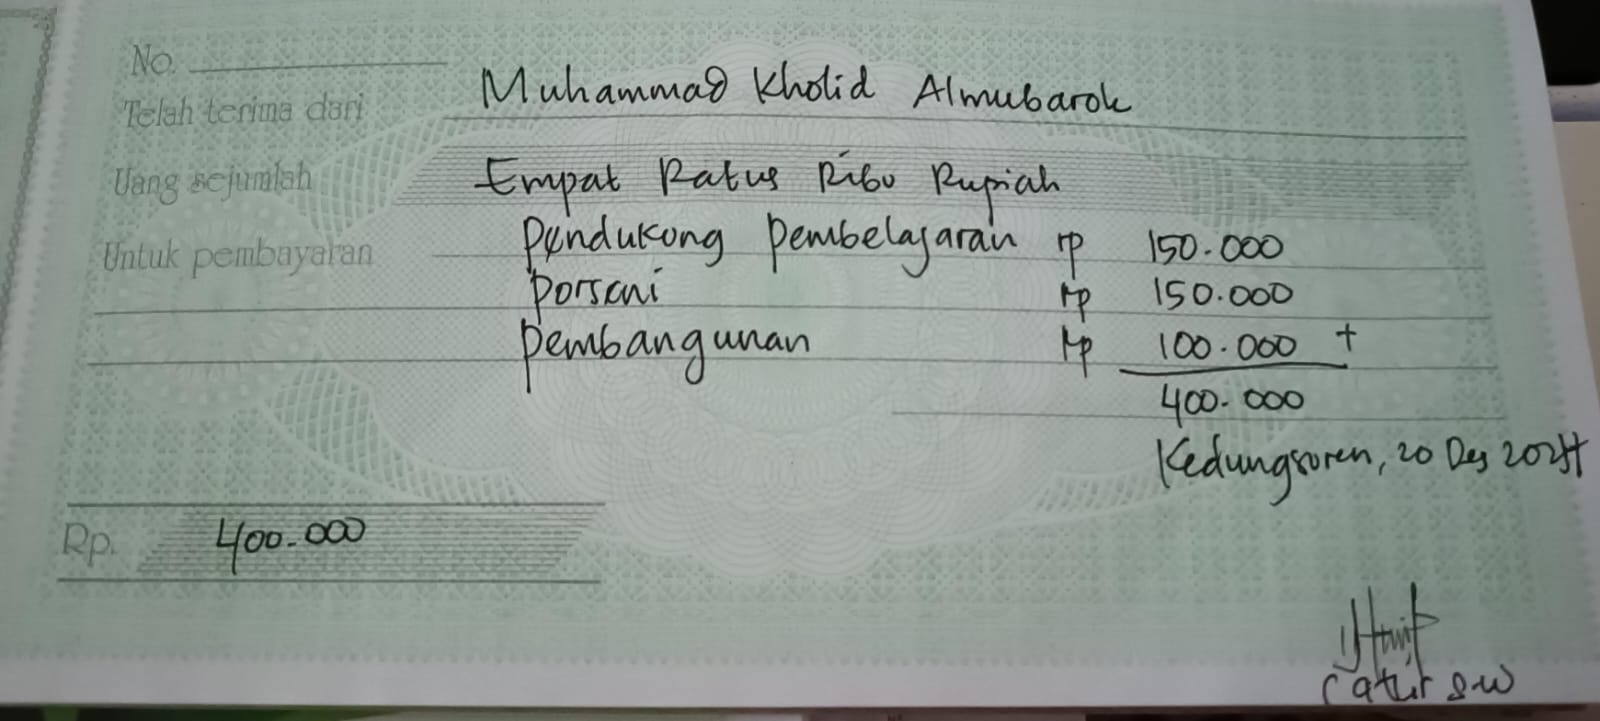 No.
Telah terima dari Muhammad Kholid Almubarok
Uang sejumlah Empat Ratus Ribu Rupiah
Untuk pembayaran Pendukung Pembelajaran rp 150.000
Porseni Rp 150.000
Pembangunan Rp 100.000 +
400.000
Kedungsoren, 20 Des 2024
Rp. 400.000
Catur S.W